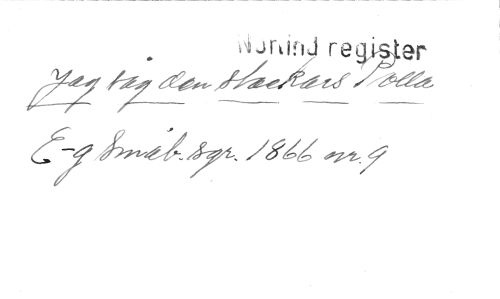 Norlind register
Jag såg den stackars Polla
E-g Småb. sgr. 1866 nr. 9